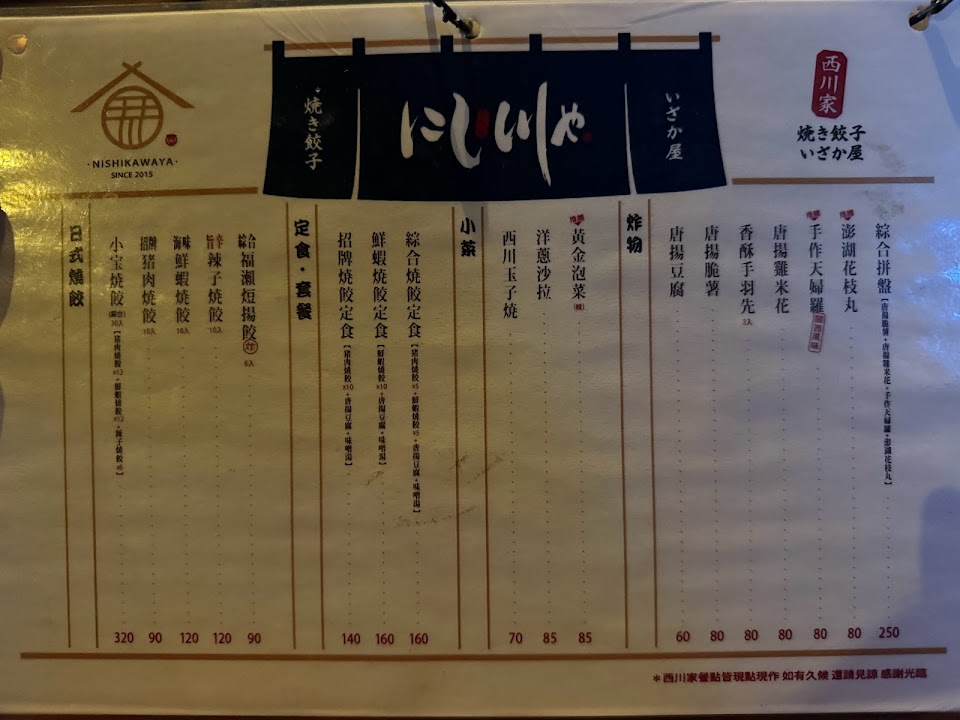 NISHIKAWAYA
SINCE 2015
焼き餃子
にし川や
いざか屋
西川家
焼き餃子
いざか屋
炸物
綜合拼盤【唐揚脆薯+唐揚雞米花+手作天婦羅+澎湖花枝丸】 250
推薦 澎湖花枝丸 80
推薦 手作天婦羅 關西風味 80
唐揚雞米花 80
香酥手羽先 2入 80
唐揚脆薯 80
唐揚豆腐 60
小菜
推薦 黃金泡菜 85
洋蔥沙拉 85
西川玉子燒 70
定食・套餐
綜合燒餃定食【豬肉燒餃x5+鮮蝦燒餃x5+唐揚豆腐+味噌湯】 160
鮮蝦燒餃定食【鮮蝦燒餃x10+唐揚豆腐+味噌湯】 160
招牌燒餃定食【豬肉燒餃x10+唐揚豆腐+味噌湯】 140
日式燒餃
綜合 福瀨烜揚餃 炸 6入 90
辛旨 辣子燒餃 10入 120
海味 鮮蝦燒餃 10入 120
招牌 豬肉燒餃 10入 90
小宝燒餃(綜合) 30入【豬肉燒餃x12+鮮蝦燒餃x12+辣子燒餃x6】 320
*西川家餐點皆現點現作 如有久候 還請見諒 感謝光臨